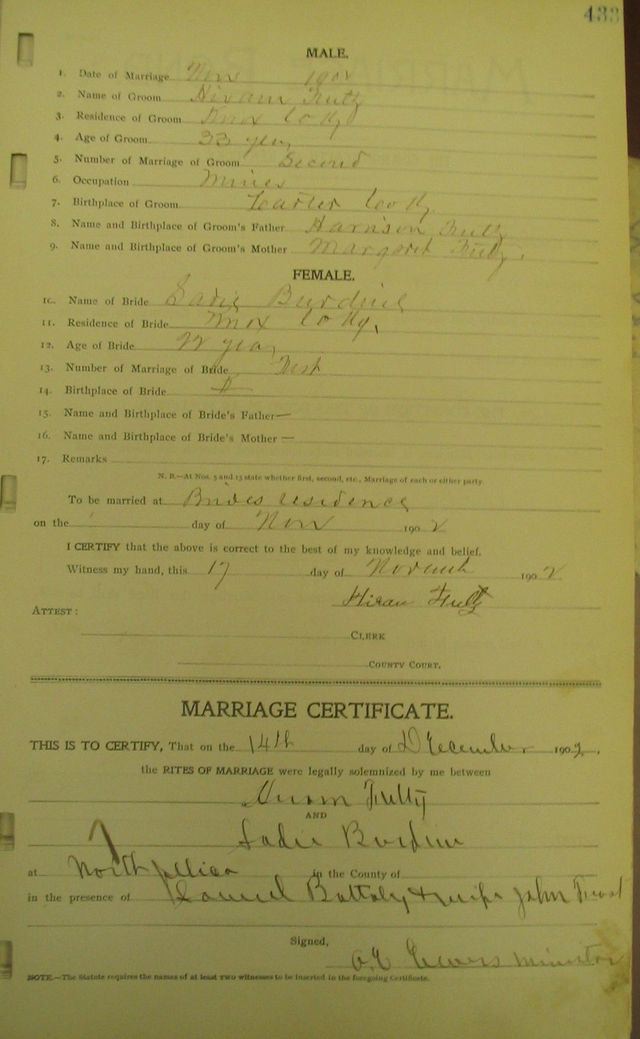 433
MALE.
1. Date of Marriage Nov 1902
2. Name of Groom Hiram Fultz
3. Residence of Groom Knox Co Ky
4. Age of Groom 33 years
5. Number of Marriage of Groom Second
6. Occupation Miner
7. Birthplace of Groom Carter Co Ky
8. Name and Birthplace of Groom's Father Harrison Fultz
9. Name and Birthplace of Groom's Mother Margaret Fultz.
FEMALE.
10. Name of Bride Sadie Burdine
11. Residence of Bride Knox Co Ky,
12. Age of Bride 22 years
13. Number of Marriage of Bride First
14. Birthplace of Bride
15. Name and Birthplace of Bride's Father —
16. Name and Birthplace of Bride's Mother —
17. Remarks
N. B.—At Nos. 5 and 13 state whether first, second, etc., Marriage of each or either party.
To be married at Brides residence
on the day of Nov 1902
I CERTIFY that the above is correct to the best of my knowledge and belief.
Witness my hand, this 17 day of Novemb 1902
Hiram Fultz
ATTEST:
CLERK
COUNTY COURT.
MARRIAGE CERTIFICATE.
THIS IS TO CERTIFY, That on the 14th day of December 1902.
the RITES OF MARRIAGE were legally solemnized by me between
Hiram Fultz
AND
Sadie Burdine
at North Jellico in the County of
in the presence of Battaly & wife John
Signed,
minister
NOTE.—The Statute requires the names of at least TWO witnesses to be inserted in the foregoing Certificate.